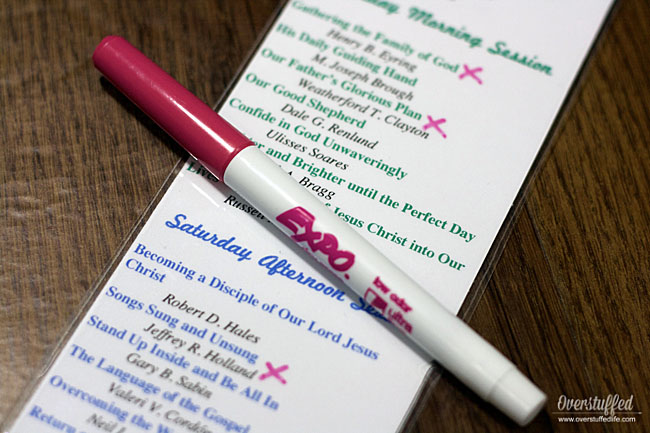 Morning Session
Gathering the Family of God
Henry B. Eyring
His Daily Guiding Hand
M. Joseph Brough
Our Father's Glorious Plan
Weatherford T. Clayton
Our Good Shepherd
Dale G. Renlund
Confide in God Unwaveringly
Ulisses Soares
and Brighter until the Perfect Day
A. Bragg
of Jesus Christ into Our
Russell
Saturday Afternoon
Becoming a Disciple of Our Lord Jesus
Christ
Robert D. Hales
Songs Sung and Unsung
Jeffrey R. Holland
Stand Up Inside and Be All In
Gary B. Sabin
The Language of the Gospel
Valeri V.
Overcoming the
Neil
Return
EXPO.
low odor
ultra
Overstuffed
www.overstuffedlife.com